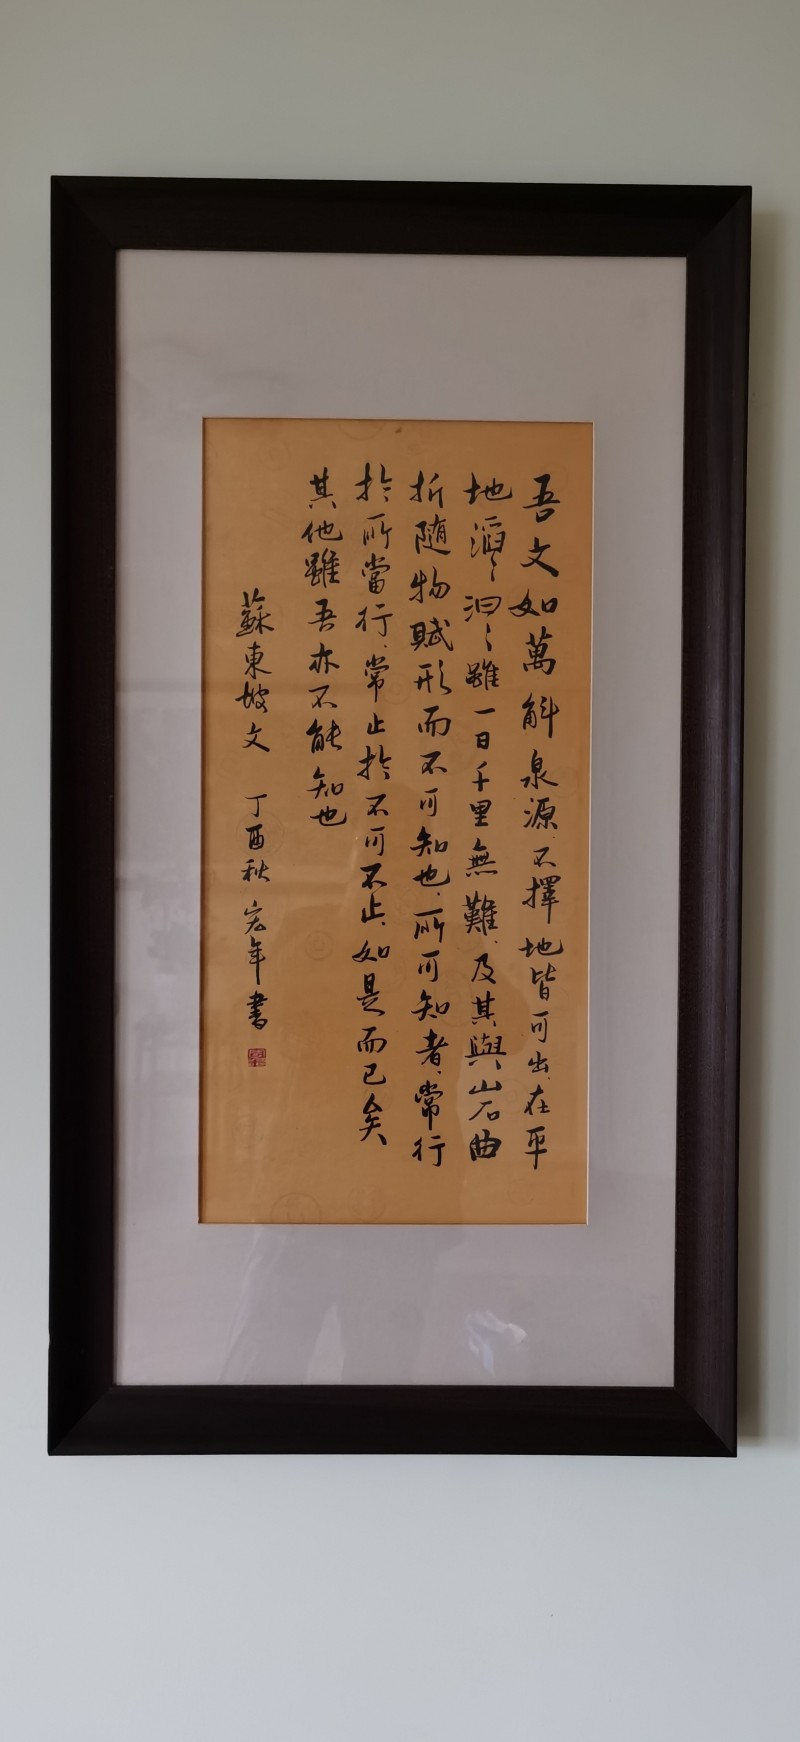 吾文如萬斛泉源、不擇地皆可出、在平
地滔〻汩〻雖一日千里無難、及其與山石曲
折隨物賦形而不可知也、所可知者、常行
於所當行、常止於不可不止、如是而已矣
其他雖吾亦不能知也
蘇東坡文 丁酉秋 宏年書